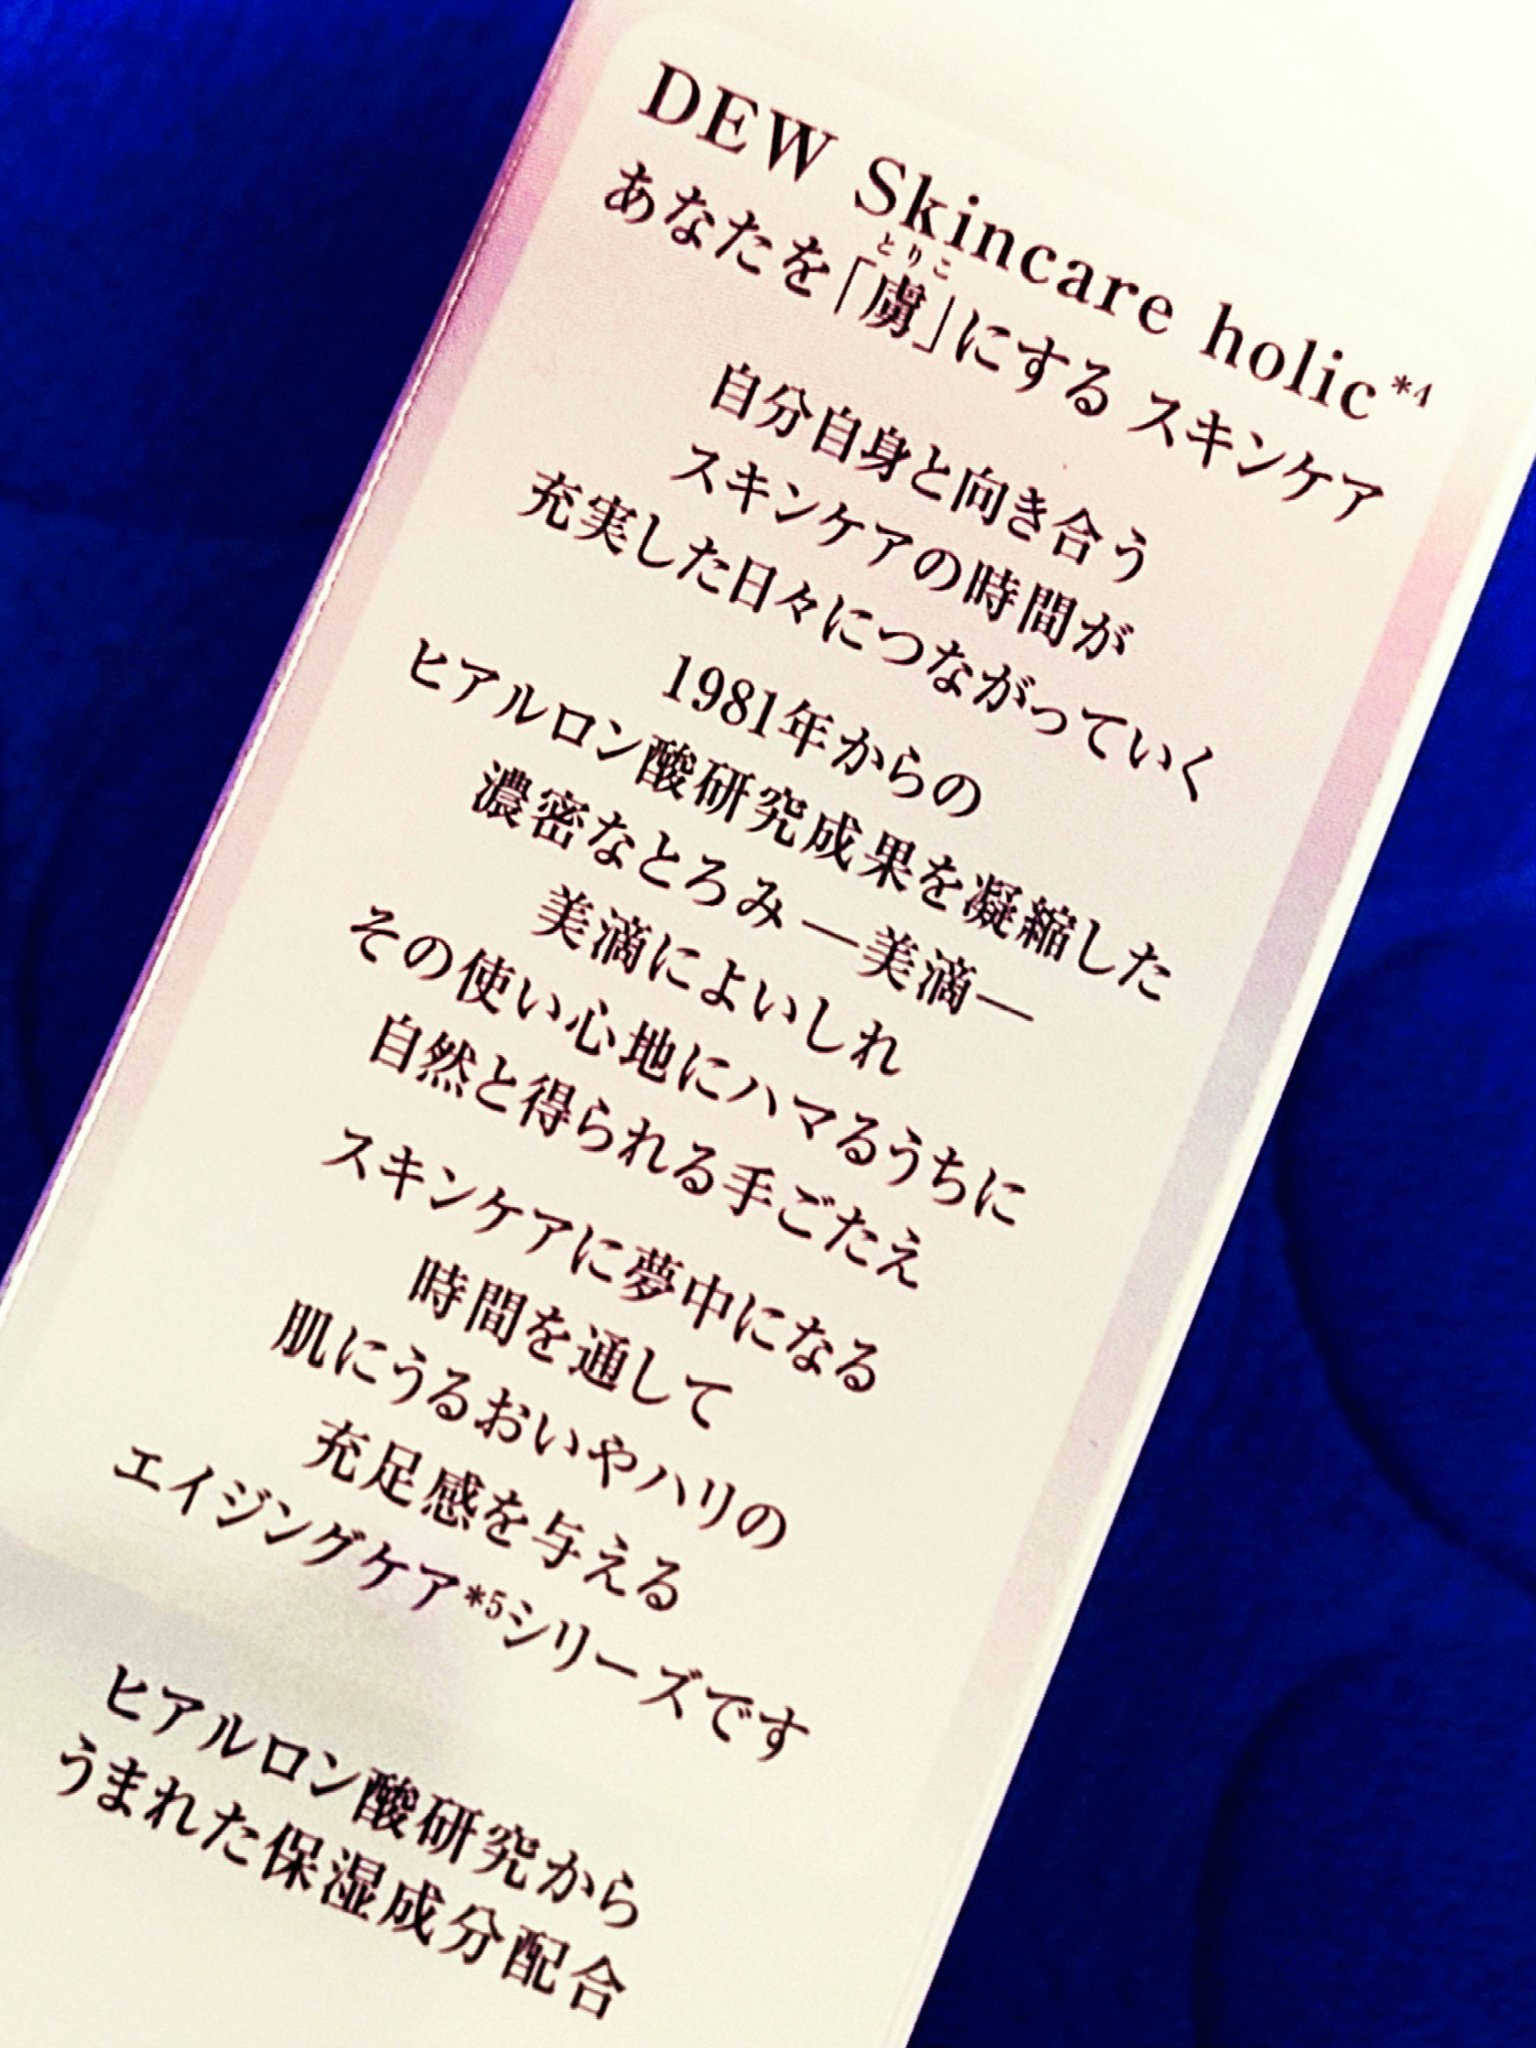 DEW Skincare holic*4
あなたを「虜」にする スキンケア
とりこ
自分自身と向き合う
スキンケアの時間が
充実した日々につながっていく
1981年からの
ヒアルロン酸研究成果を凝縮した
濃密なとろみ ―美滴―
美滴によいしれ
その使い心地にハマるうちに
自然と得られる手ごたえ
スキンケアに夢中になる
時間を通して
肌にうるおいやハリの
充足感を与える
エイジングケア*5シリーズです
ヒアルロン酸研究から
うまれた保湿成分配合